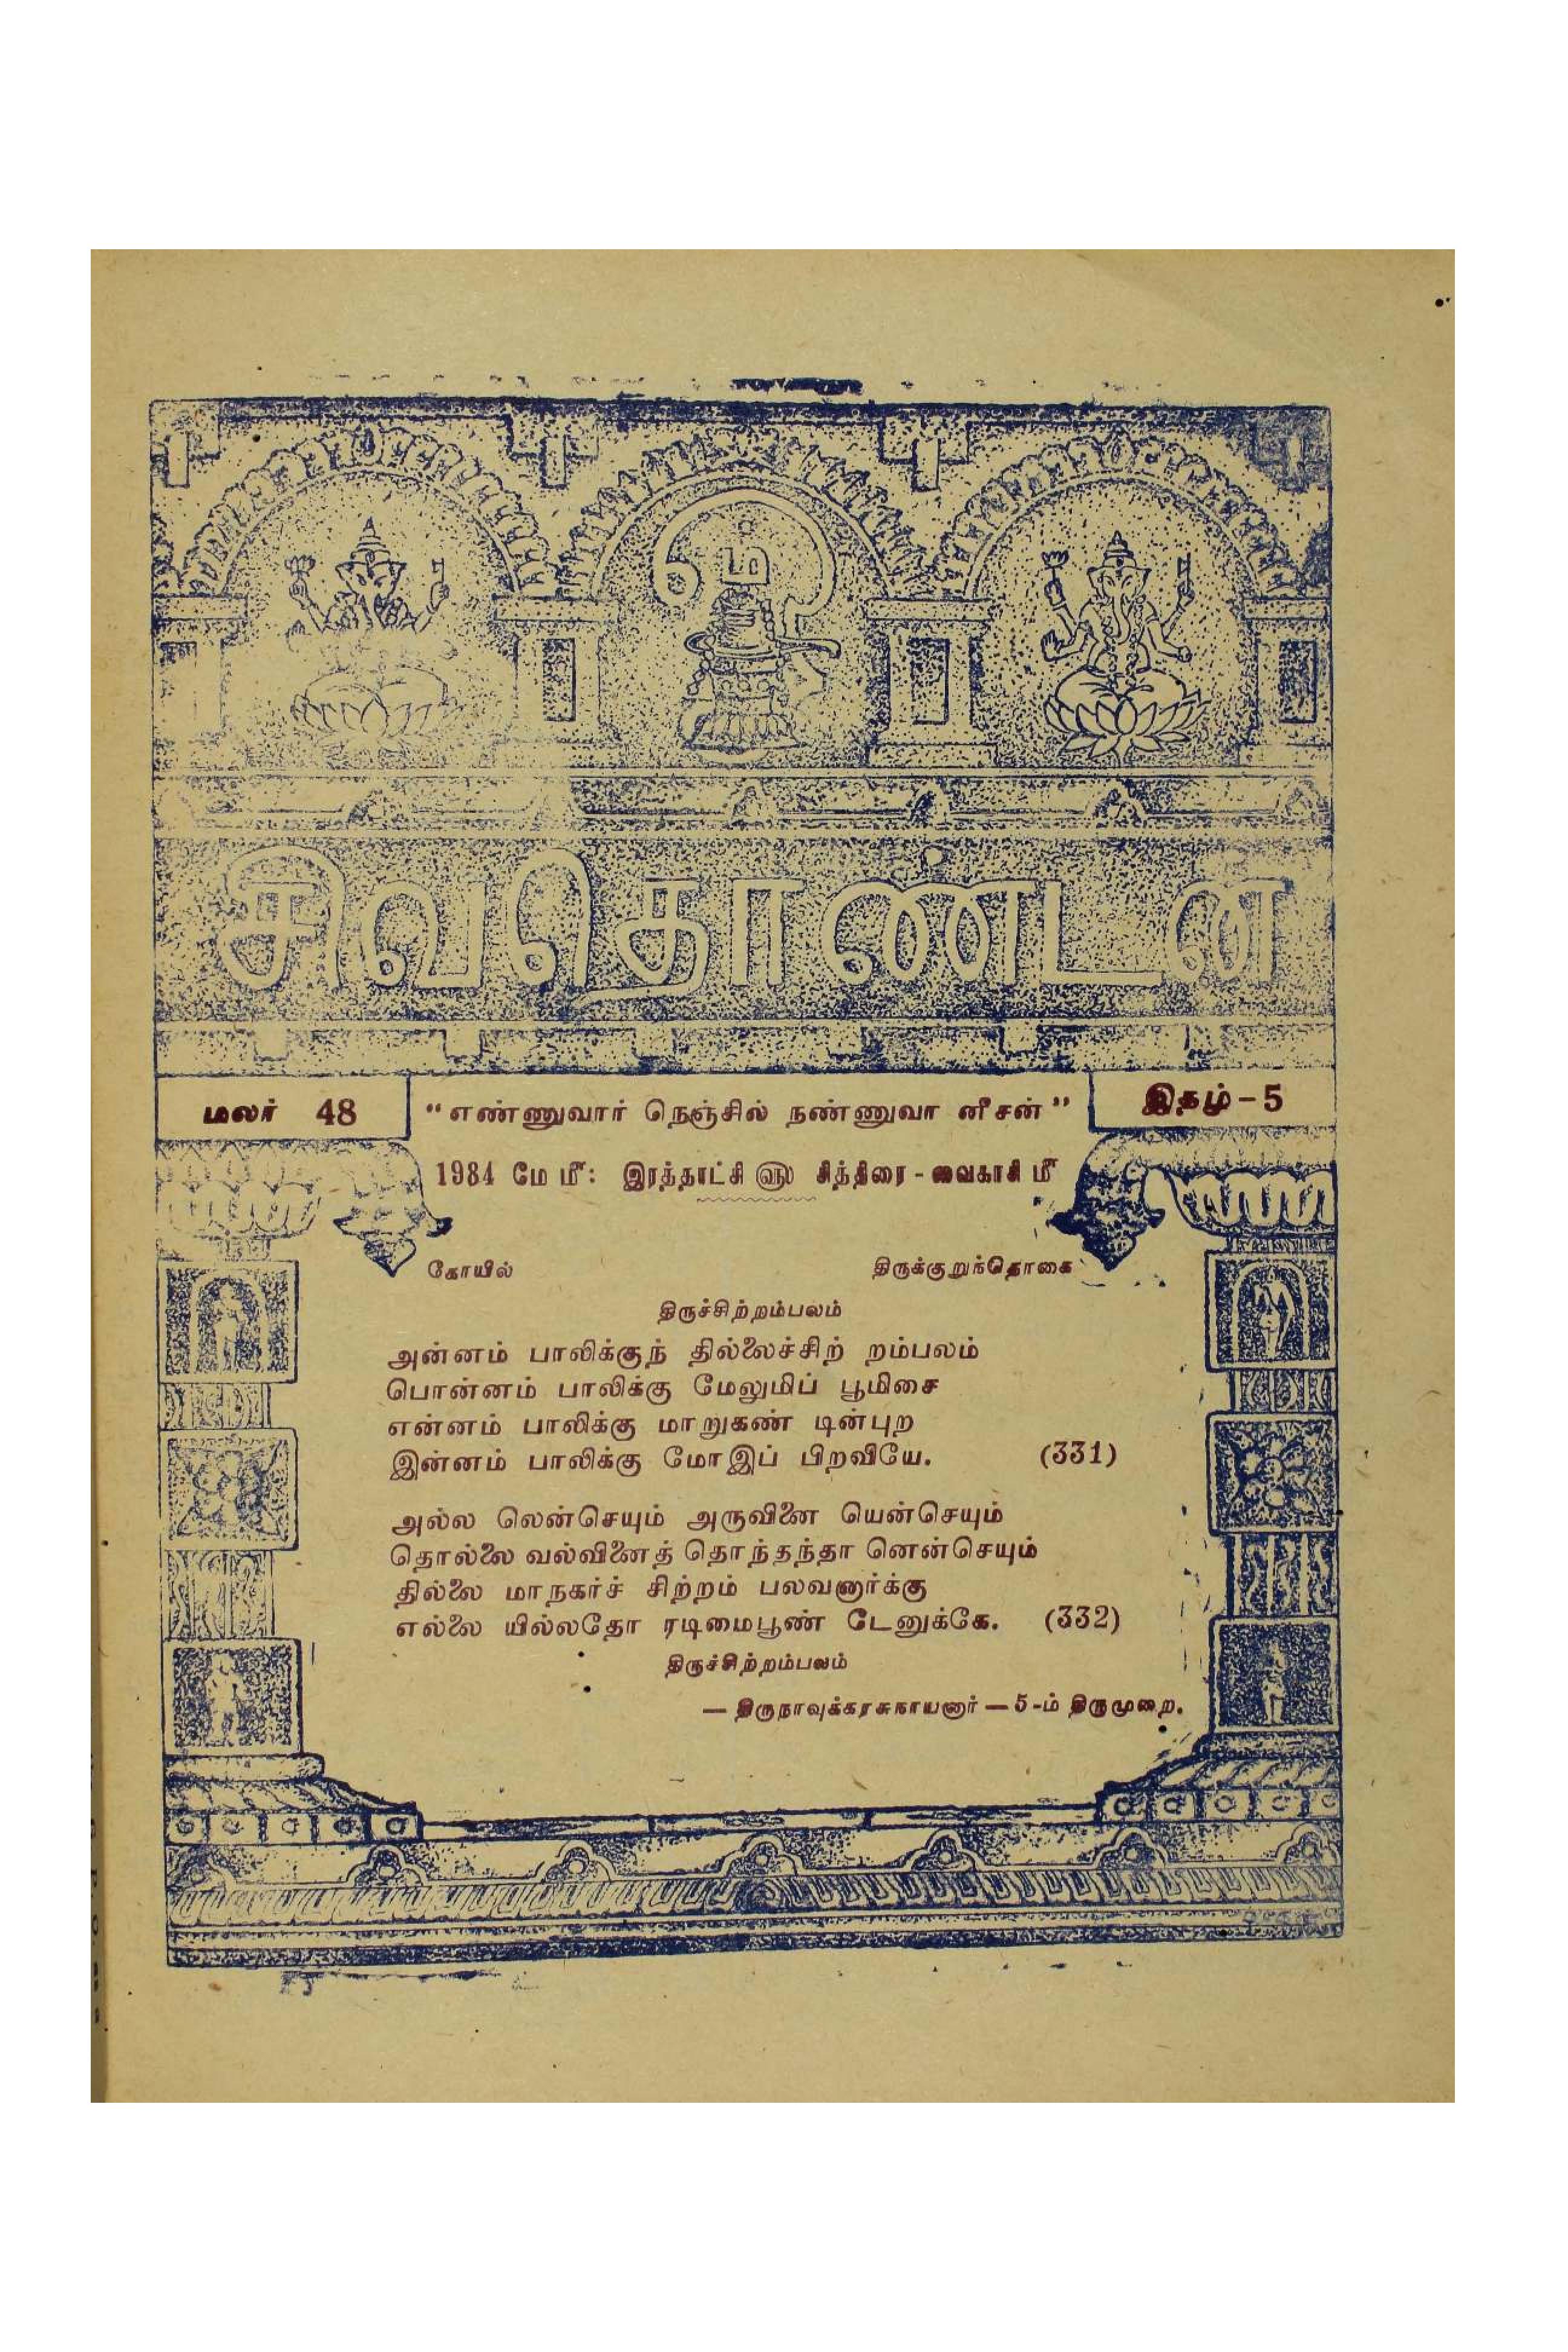 சிவதொண்டன்
மலர் 48 "எண்ணுவார் நெஞ்சில் நண்ணுவா னீசன்" இதழ் - 5
1984 மே மீ: இரத்தாட்சி ௵ சித்திரை - வைகாசி மீ
கோயில் திருக்குறுந்தொகை
திருச்சிற்றம்பலம்
அன்னம் பாலிக்குந் தில்லைச்சிற் றம்பலம்
பொன்னம் பாலிக்கு மேலுமிப் பூமிசை
என்னம் பாலிக்கு மாறுகண் டின்புற
இன்னம் பாலிக்கு மோஇப் பிறவியே. (331)
அல்ல லென்செயும் அருவினை யென்செயும்
தொல்லை வல்வினைத் தொந்தந்தா னென்செயும்
தில்லை மாநகர்ச் சிற்றம் பலவனார்க்கு
எல்லை யில்லதோ ரடிமைபூண் டேனுக்கே. (332)
திருச்சிற்றம்பலம்
— திருநாவுக்கரசுநாயனார் — 5-ம் திருமுறை.